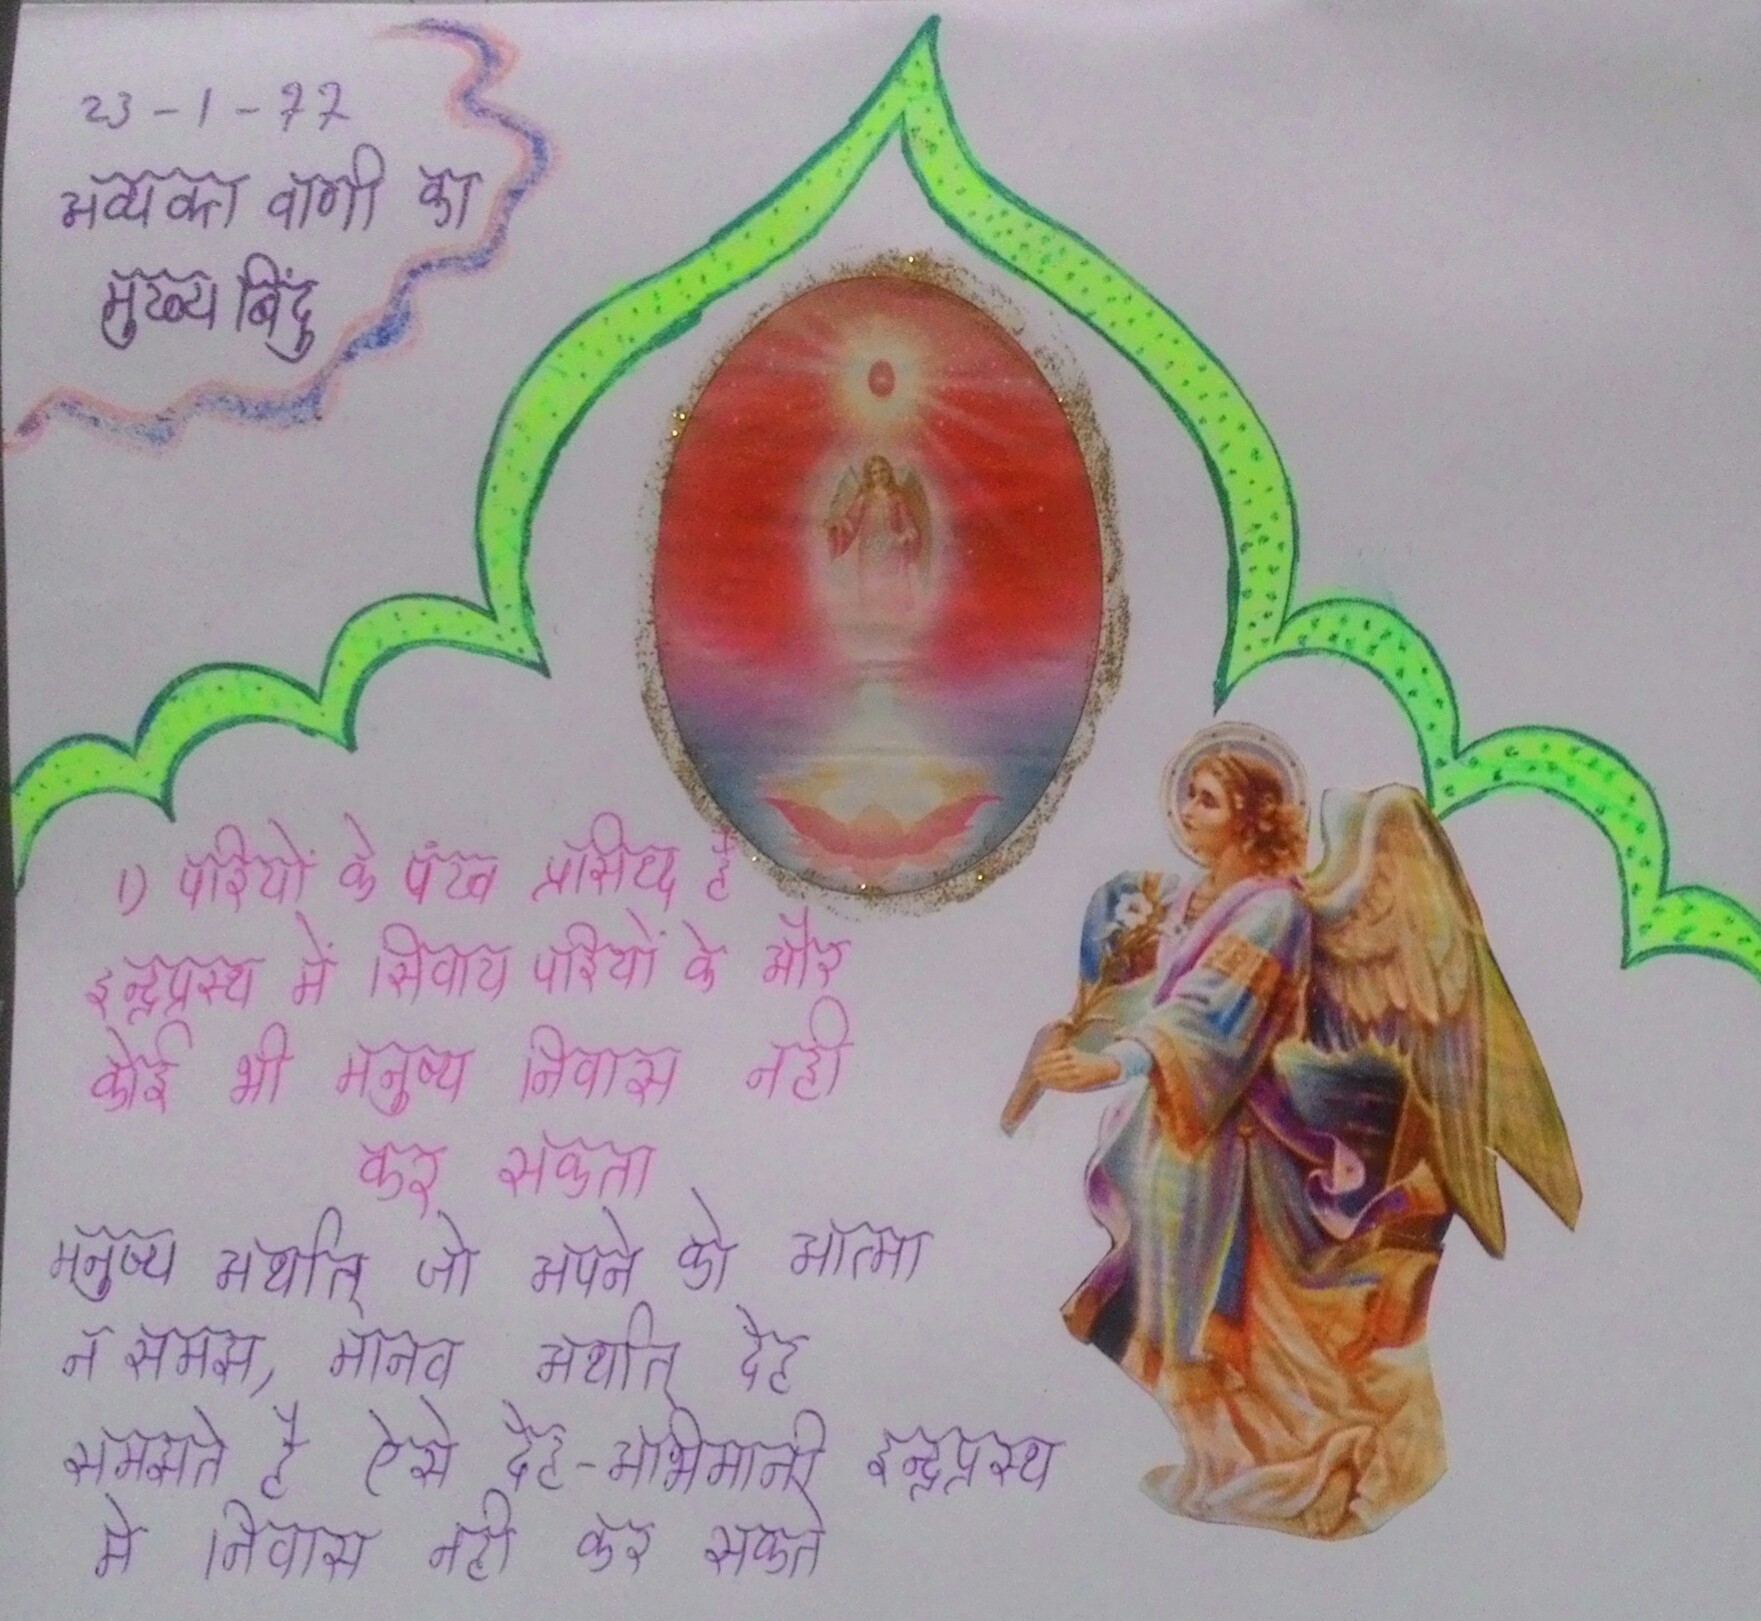 23-1-77
अव्यक्त वाणी का
मुख्य बिंदु
1) परियों के पंख प्रसिध्द है
इन्द्रप्रस्थ में सिवाय परियों के और
कोई भी मनुष्य निवास नही
कर सकता
मनुष्य अर्थात् जो अपने को आत्मा
न समझ, मानव अर्थात् देह
समझते है ऐसे देह-अभिमानी इन्द्रप्रस्थ
मे निवास नही कर सकते